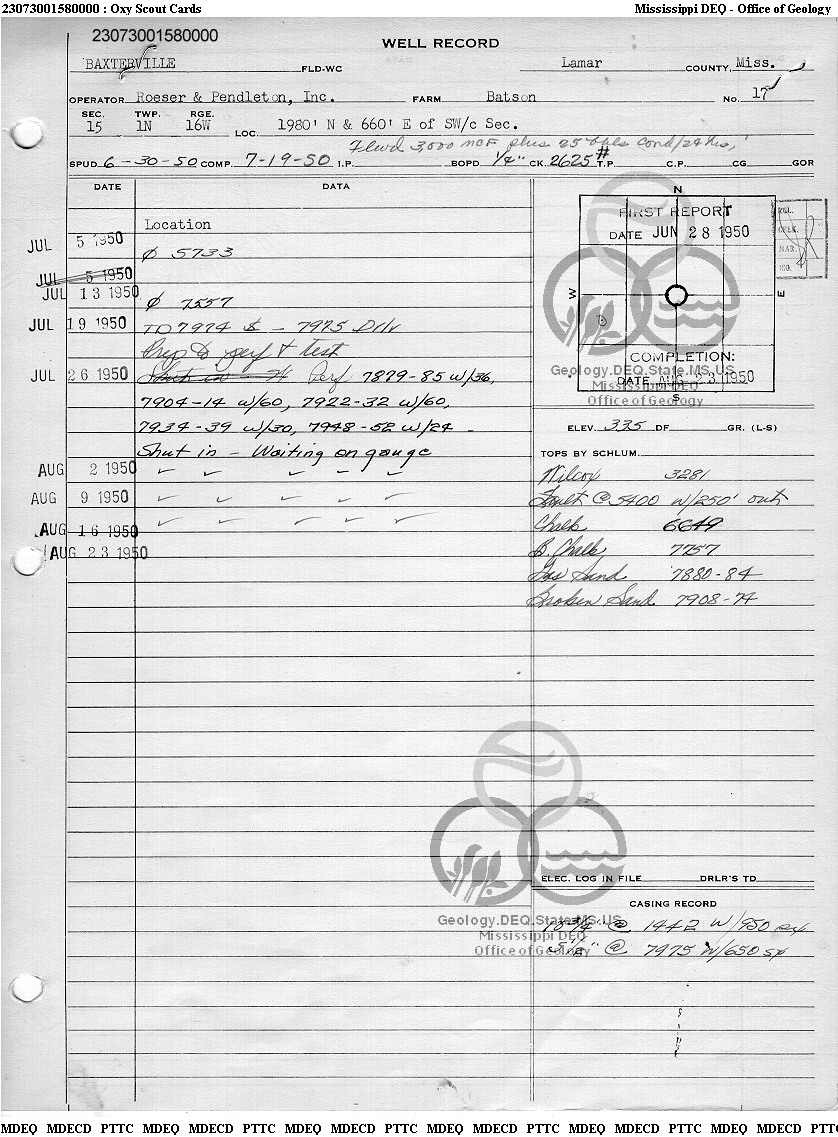 23073001580000 : Oxy Scout Cards Mississippi DEQ - Office of Geology
23073001580000
WELL RECORD
BAXTERVILLE FLD-WC Lamar COUNTY, Miss.
OPERATOR Roeser & Pendleton, Inc. FARM Batson NO. 17
SEC. TWP. RGE.
15 1N 16W LOC. 1980' N & 660' E of SW/c Sec.
Flwd 3,000 MCF plus 25 bbls cond/24 hrs,
SPUD 6-30-50 COMP. 7-19-50 I.P. BOPD 1/4" CK. 2625# T.P. C.P. CG GOR
DATE DATA
N
FIRST REPORT
DATE JUN 28 1950
W E
COMPLETION:
DATE AUG 23 1950
S
REL.
CHK.
MAR.
ISO.
Location
JUL 5 1950 Ø 5733
JUL 5 1950
JUL 13 1950 Ø 7557
JUL 19 1950 TD 7974 $ - 7975 Drlr
Prep to perf & test
JUL 26 1950 Shut in Perf 7879-85 w/36,
7904-14 w/60, 7922-32 w/60,
7934-39 w/30, 7948-52 w/24
Shut in - Waiting on gauge
AUG 2 1950
AUG 9 1950
AUG 16 1950
AUG 23 1950
Geology.DEQ.State.MS.US
Mississippi DEQ
Office of Geology
ELEV. 335 DF GR. (L-S)
TOPS BY SCHLUM.
Wilcox 3281
Fault @ 5400 w/250' out
Chalk 6649
B. Chalk 7757
Gas Sand 7880-84
Broken Sand 7908-74
ELEC. LOG IN FILE DRLR'S TD
CASING RECORD
10-3/4" @ 1442 w/950 sx
5 1/2" @ 7975 w/650 sx
Geology.DEQ.State.MS.US
Mississippi DEQ
Office of Geology
MDEQ MDECD PTTC MDEQ MDECD PTTC MDEQ MDECD PTTC MDEQ MDECD PTTC MDEQ MDECD PTTC MDEQ MDECD PTTC